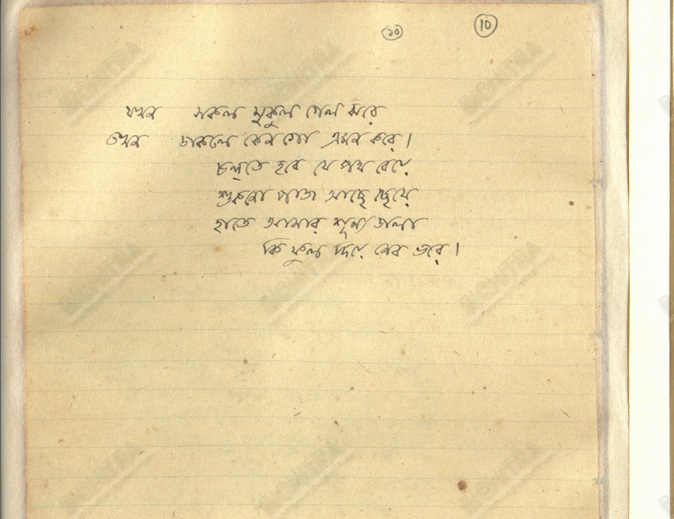 ১০ 10
যখন সকল মুকুল গেল ঝরে
তখন ডাকলে কেন গো এমন করে।
চলতে হবে যে পথ বেয়ে
শুকনো পাতা আছে ছেয়ে
হাতে আমার শূন্য ডালা
কি ফুল দিয়ে দেব ভরে।
BICHITRA